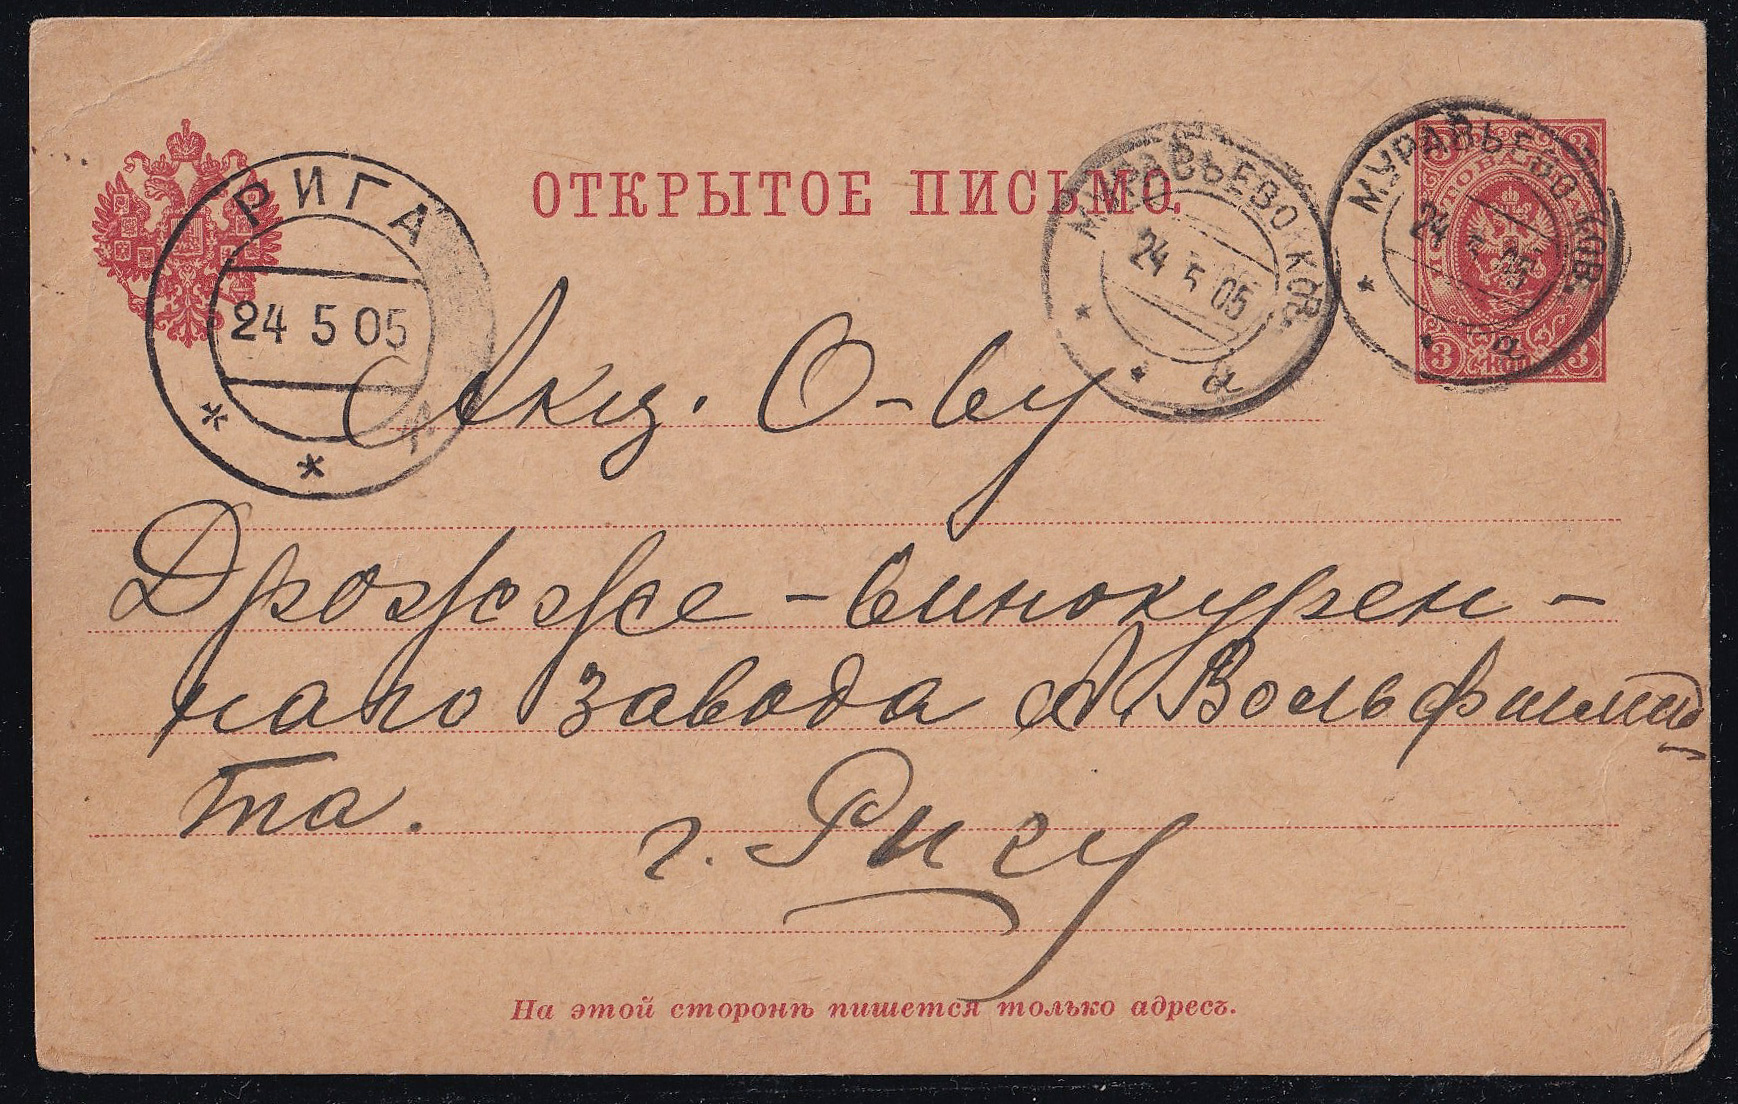 ОТКРЫТОЕ ПИСЬМО.
РИГА
24 5 05
МУРАВЬЕВО КОВ.
24 5 05
а
МУРАВЬЕВО КОВ.
24 5 05
а
ПОЧТОВАЯ
3 3
3 КОП 3
Акц. О-ву
Дрожже-винокурен-
наго завода А. Вольфшмид-
та.
г. Ригу
На этой сторонѣ пишется только адресъ.